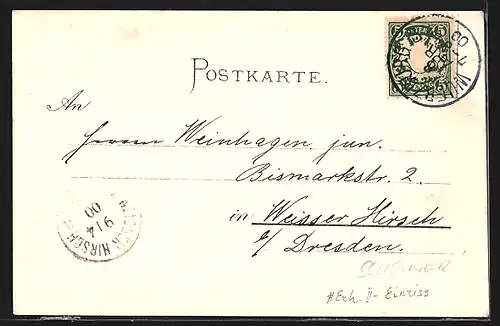 POSTKARTE.
An
Herrn Weinhagen jun.
Bismarkstr. 2.
in Weisser Hirsch
b/ Dresden.
9/4
00
HIRSCH
5 5
00
#Erh. II- Einriss